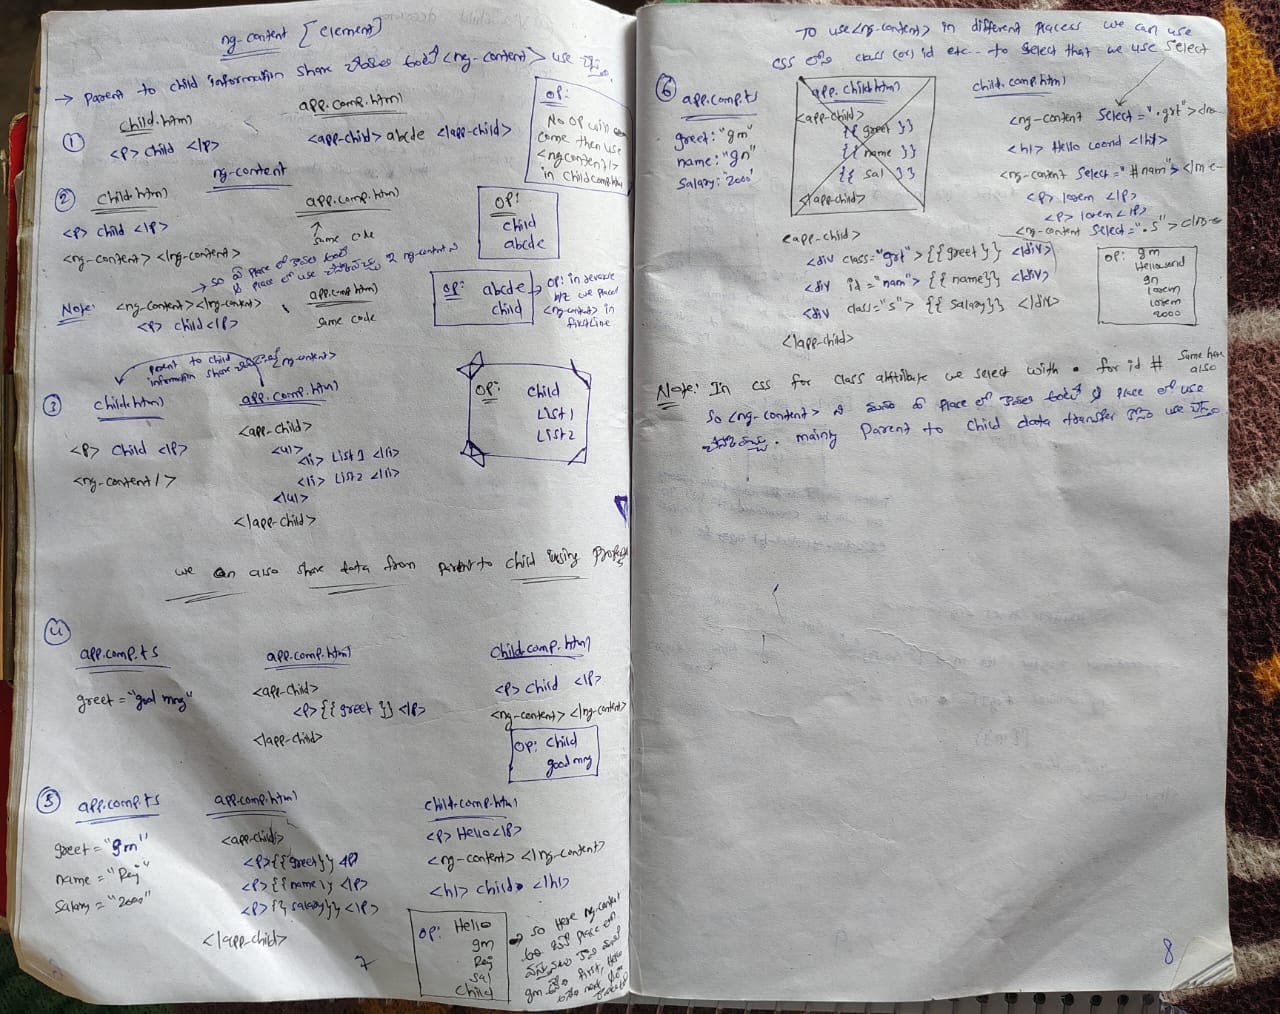 ng-content [element]
→ Parent to child information share చేయడం కోసం <ng-content> use చేస్తాం
① child.html
<p> child </p>
app.comp.html
<app-child> abcde </app-child>
OP:
No OP will
come then use
<ng content/>
in child comp.html
ng-content
② child.html
<p> child </p>
<ng-content> </ng-content>
app.comp.html
↑
same code
OP:
child
abcde
Note: <ng-content></ng-content>
<p> child </p>
app.comp.html
same code
OP: abcde
child
→ OP: in reverse
b/z we placed
<ng-content> in
first line
parent to child
information share <ng-content>
③ child.html
<p> child </p>
<ng-content/>
app.comp.html
<app-child>
<ul>
<li> List 1 </li>
<li> List 2 </li>
</ul>
</app-child>
OP: child
List 1
List 2
we can also share data from parent to child using
④
app.comp.ts
greet = "good mng"
app.comp.html
<app-child>
<p>{{greet}} </p>
</app-child>
child.comp.html
<p> child </p>
<ng-content> </ng-content>
OP: child
good mng
⑤ app.comp.ts
greet = "gm"
name = "Raj"
salary = "2000"
app.comp.html
<app-child>
<p>{{greet}} </p>
<p>{{name}} </p>
<p>{{salary}} </p>
</app-child>
child.comp.html
<p> Hello </p>
<ng-content> </ng-content>
<h1> child </h1>
OP: Hello
gm
Raj
sal
child
→ so Here ng-content
place
gm first, Hello
next
7
To use <ng-content> in different places we can use
css లోని class (or) id etc.. to select that we use select
⑥ app.comp.ts
greet: "gm"
name: "gn"
salary: "2000"
app.child.html
<app-child>
{{ greet }}
{{ name }}
{{ sal }}
</app-child>
child.comp.html
<ng-content select=".grt">
<h1> Hello world </h1>
<ng-content select="#nam">
<p> lorem </p>
<p> lorem </p>
<ng-content select=".s">
<app-child>
<div class="grt"> {{greet}} </div>
<div id="nam"> {{name}} </div>
<div class="s"> {{salary}} </div>
</app-child>
OP: gm
Hello world
gn
lorem
lorem
2000
Note: In css for class attribute we select with . for id # same here also
so <ng-content> ని మనం ఏ place లో కావాలి అంటే ఆ place లో use
చేసుకోవచ్చు. mainly Parent to child data transfer కోసం use చేస్తాం
8